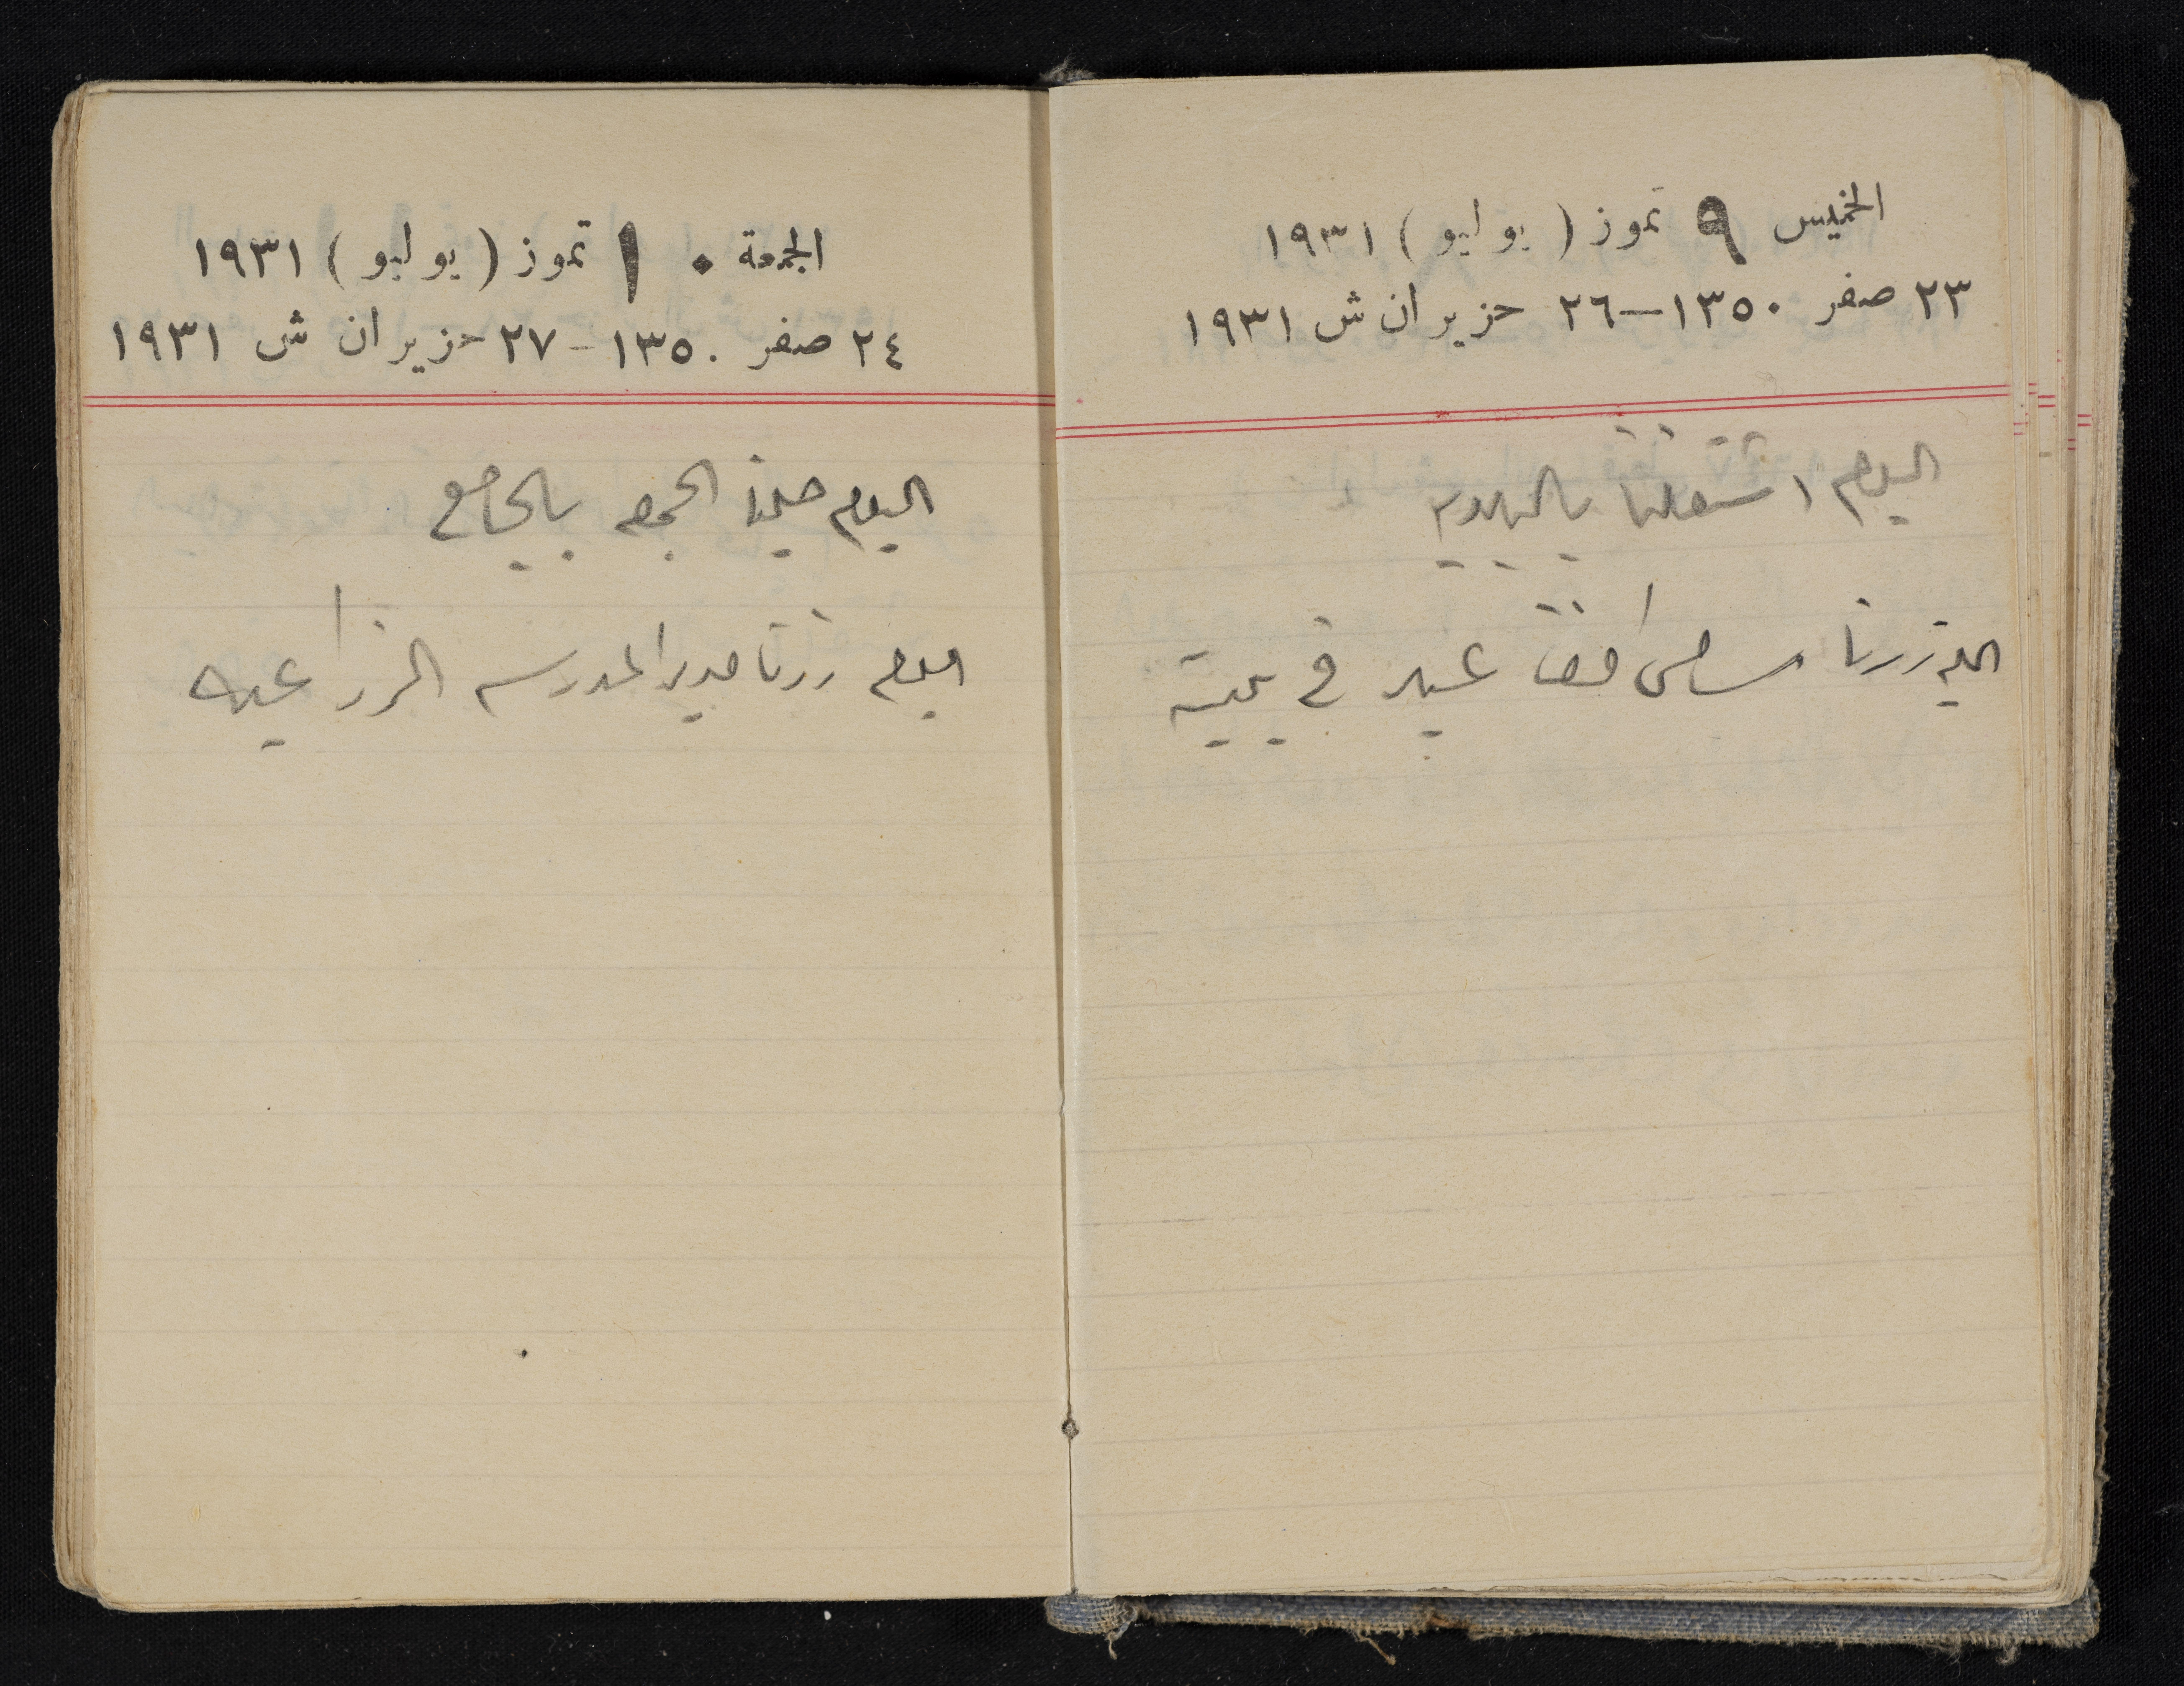 الخميس ٩ تموز ( يوليو ) ١٩٣١
٢٣ صفر ١٣٥٠ – ٢٦ حزيران ش ١٩٣١
اليوم اشتغلنا
زرنا في بيته
الجمعة ١٠ تموز ( يوليو ) ١٩٣١
٢٤ صفر ١٣٥٠ - ٢٧ حزيران ش ١٩٣١
اليوم صلينا الجمعه بالجامع
اليوم زرنا مدير المدرسه الزراعيه